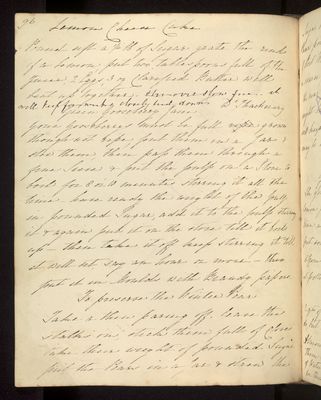 96 Lemon Cheese Cake
Pound up 1/4 lb of Sugar grate the rind
of a Lemon put two table spoons full of the
juice 2 Eggs 3 oz Clarified Butter well
beat up together. over slow fire. it
will keep for months closely tied down. Dr Thackeray
Green Gooseberry
Your Gooseberries must be full grown
though not ripe, put them in a Jar &
stew them, then pass them through a
fine Sieve & put the pulp on a Stove to
boil for minutes stirring it all the
time have ready the weight of this pulp
in pounded Sugar, add it to the pulp stirring
it & again put it on the stove till it boils
up — then take it off keep stirring it till
it will set say an hour or more — then
put it in Moulds with Brandy papers
To preserve the Winter Pear
Take & thin paring off, leave the
stalks on, stick them full of Cloves
take their weight of pounded Sugar
put the Pears in a Jar & strew the